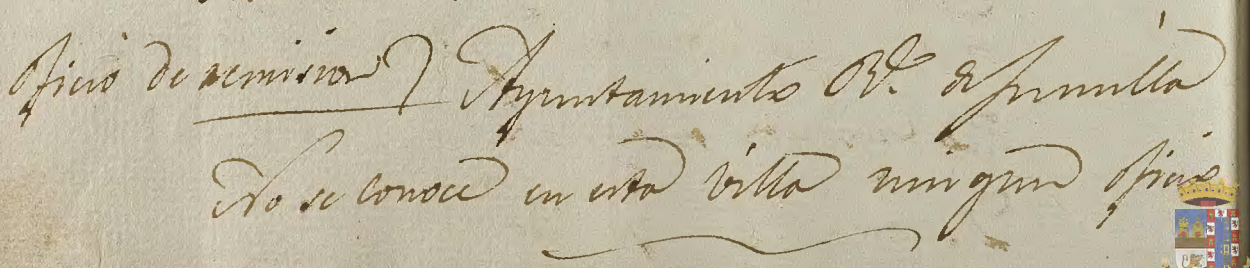 Oficio de remision Ayuntamiento Rl. de Jumilla
No se conoce en esta villa ningun oficio